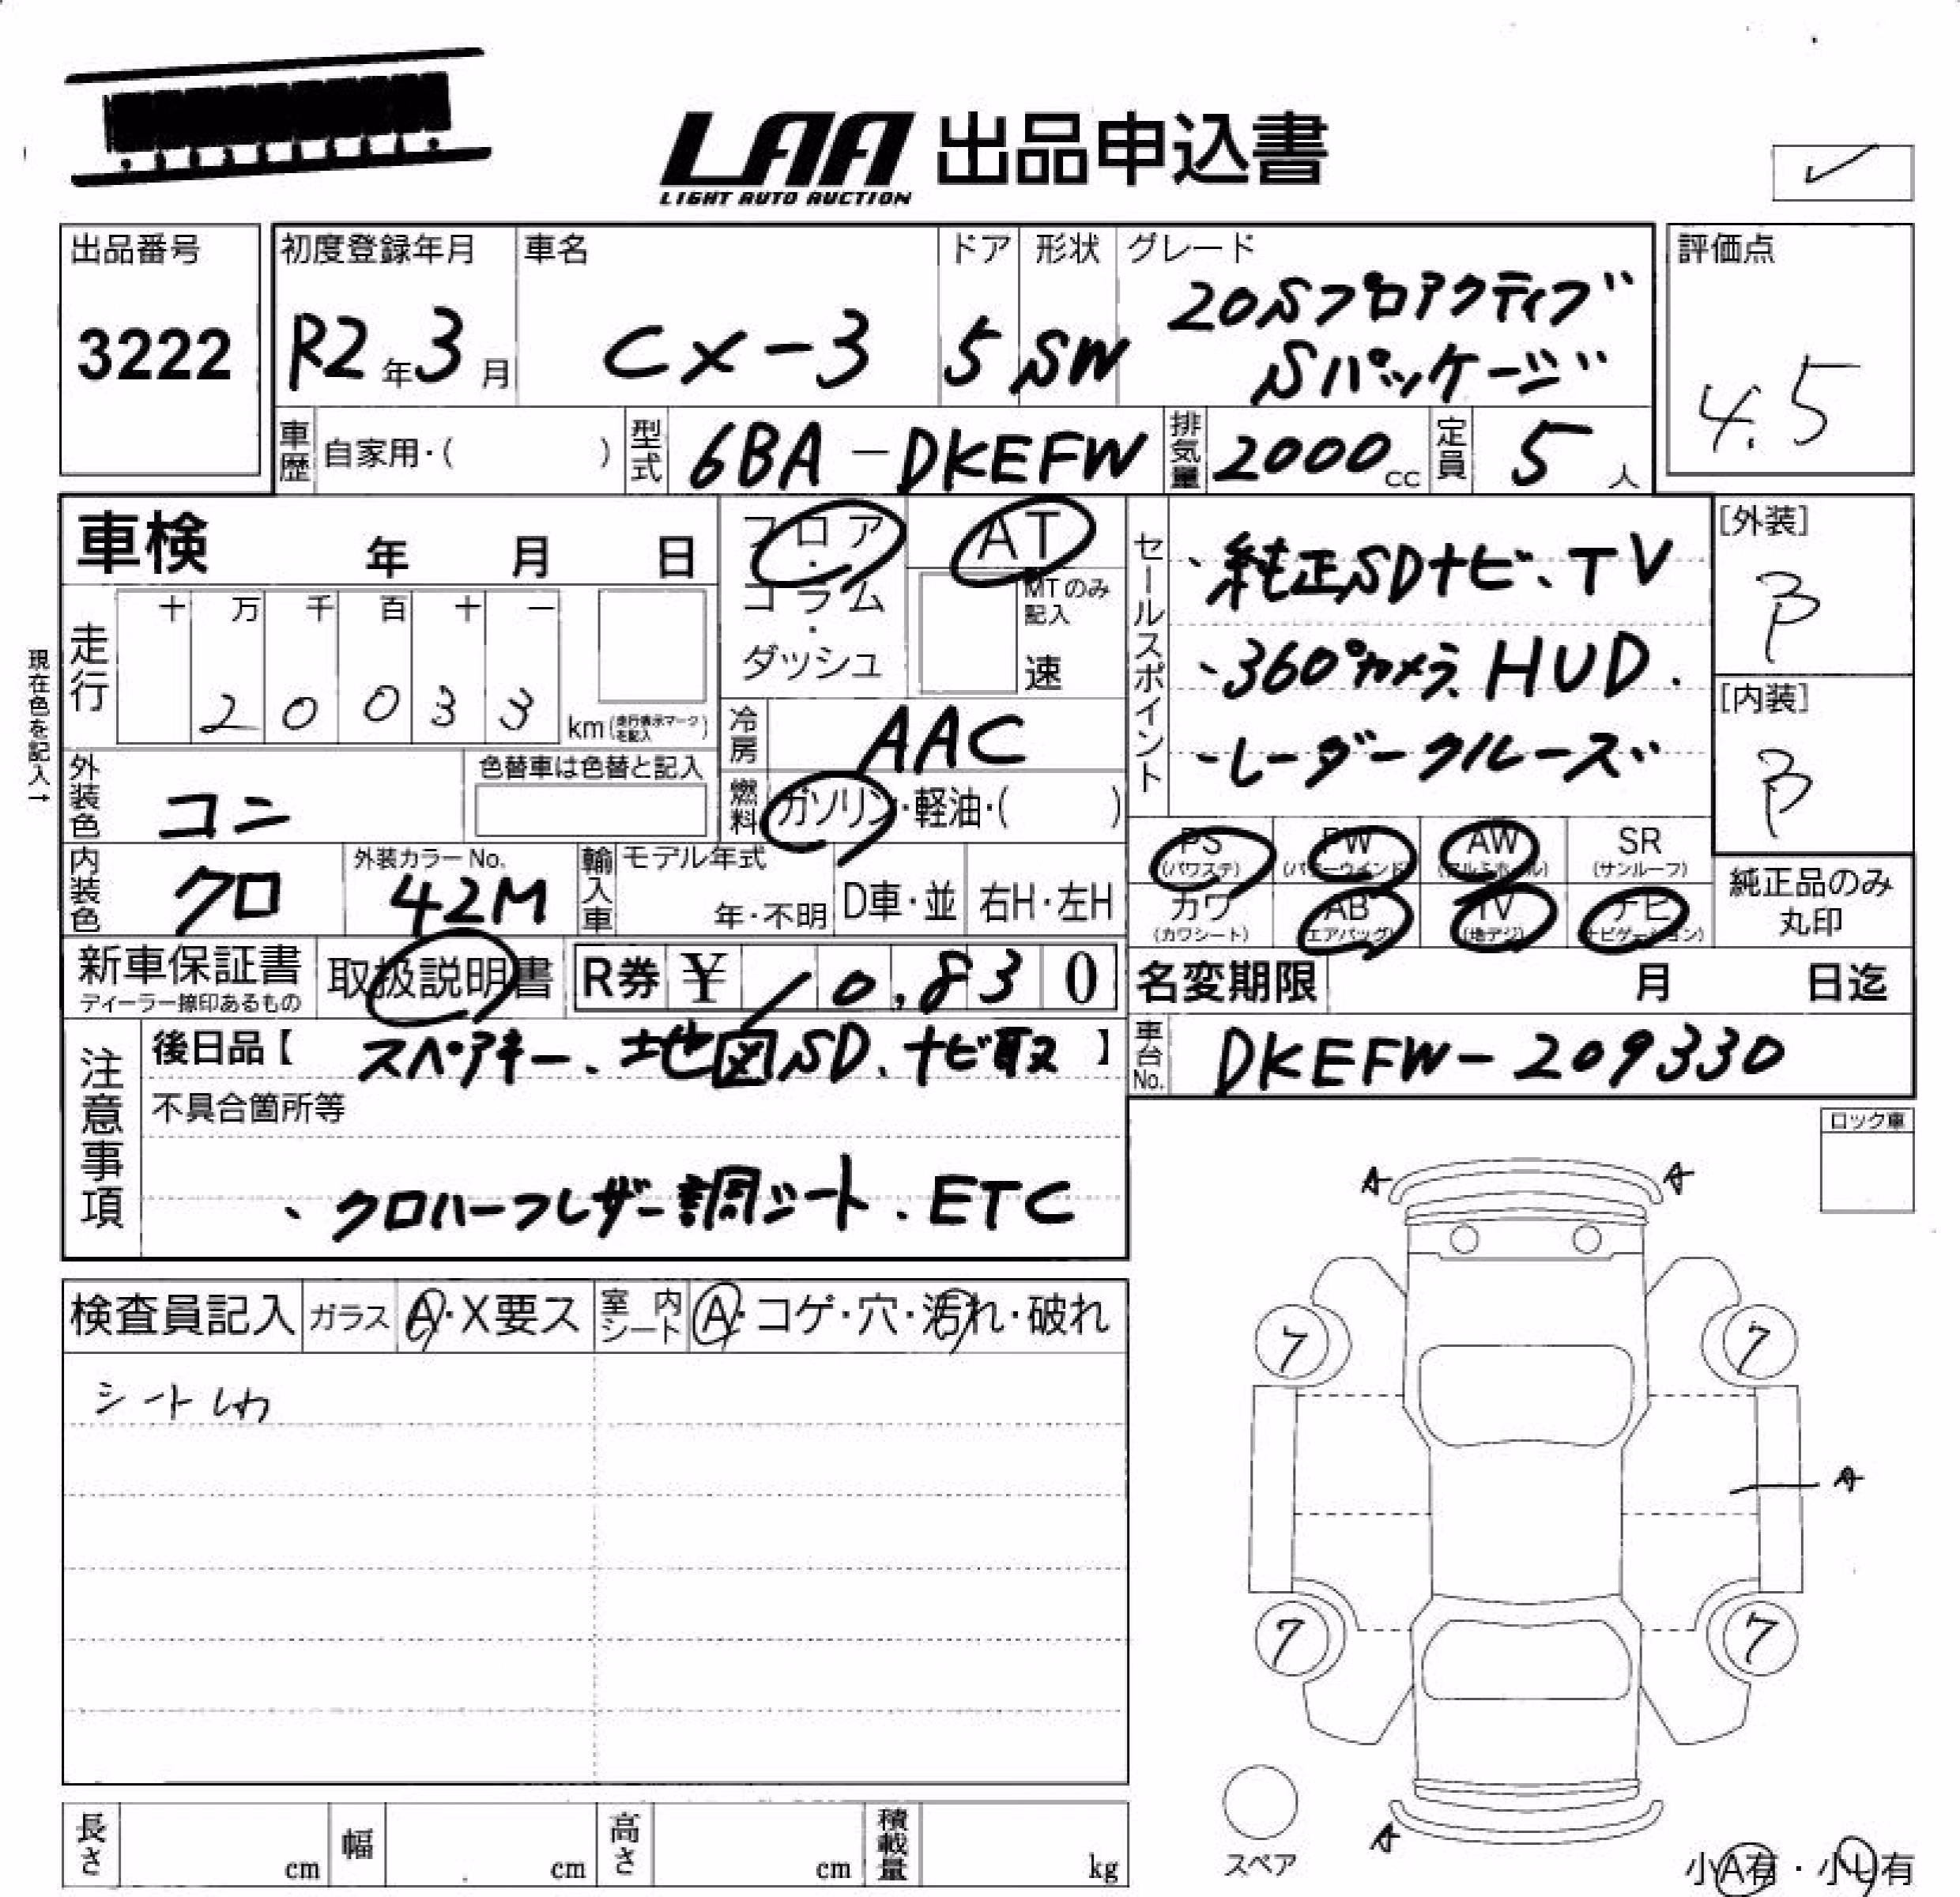 LAA 出品申込書
LIGHT AUTO AUCTION
出品番号
3222
初度登録年月
R2年3月
車名
CX-3
ドア
5
形状
SW
グレード
20Sプロアクティブ
Sパッケージ
評価点
4.5
車歴
自家用・( )
型式
6BA-DKEFW
排気量
2000cc
定員
5人
車検 年 月 日
現在色を記入→
走行
十 万 千 百 十 一
2 0 0 3 3
km(走行表示マークを記入)
フロア・
コラム・
ダッシュ
AT
MTのみ
記入
速
冷房
AAC
燃料
ガソリン・軽油・( )
外装色
コン
色替車は色替と記入
内装色
クロ
外装カラーNo.
42M
輸入車
モデル年式
年・不明
D車・並
右H・左H
セールスポイント
、純正SDナビ、TV
、360°カメラ、HUD.
、レーダークルーズ
[外装]
B
[内装]
B
PS
(パワステ)
PW
(パワーウインド)
AW
(アルミホイル)
SR
(サンルーフ)
カワ
(カワシート)
AB
(エアバッグ)
TV
(地デジ)
ナビ
(ナビゲーション)
純正品のみ
丸印
新車保証書
ディーラー捺印あるもの
取扱説明書
R券 ¥ 10,830
名変期限 月 日迄
車台No.
DKEFW-209330
注意事項
後日品【 スペアキー、地図SD、ナビ取 】
不具合箇所等
、クロハーフレザー調シート、ETC
ロック車
A A
検査員記入
ガラス
A・X要ス
室内シート
A・コゲ・穴・汚れ・破れ
シートしわ
7 7
A
7 7
A
スペア
小A有・小U有
長さ
cm
幅
cm
高さ
cm
積載量
kg